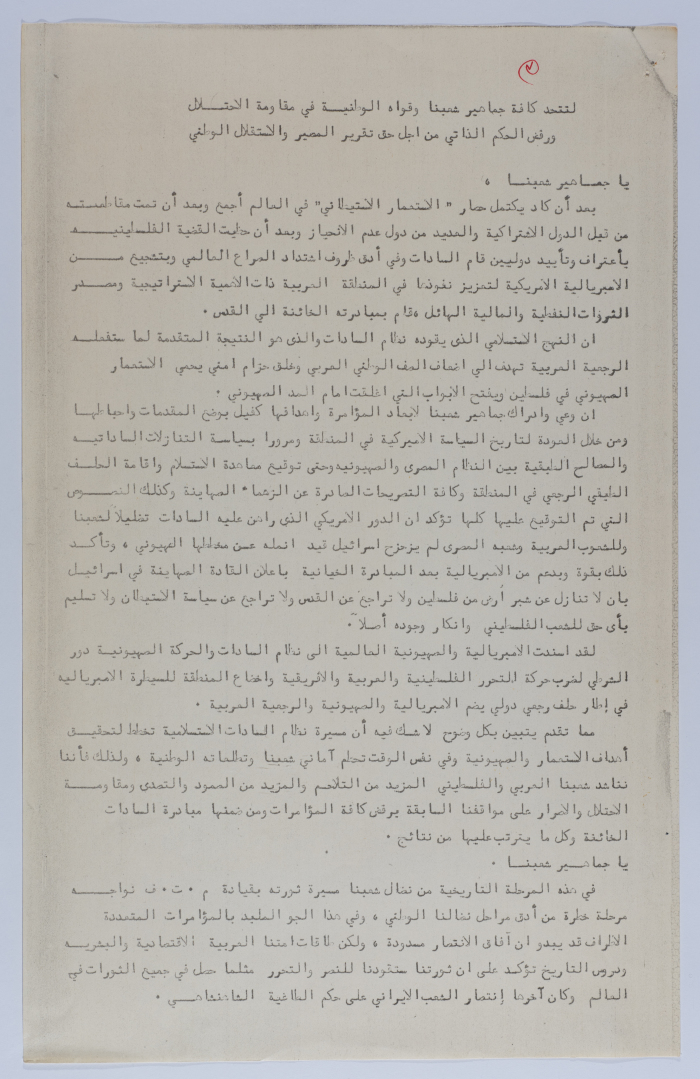 ٧
لنتحد كافة جماهير شعبنا وقواه الوطنيـة في مقاومة الاحتـــلال
ورفض الحكم الذاتي من اجل حق تقرير المصير والاستقلال الوطني
يا جمــاهير شعبنــا ،
بعد أن كاد يكتمل حصار " الاستعمار الاستيطاني" في العالم أجمع وبعد أن تمت مقاطعـــته
من قبل الدول الاشتراكية والعديد من دول عدم الانحياز وبعد أن حظيت القضية الفلسطينيـــه
بأعتراف وتأييد دوليين قام السادات وفي أدق ظروف اشتداد الصراع العالمي وبتشجيع مـــن
الامبريالية الامريكية لتعزيز نفوذها في المنطقة العربية ذات الاهمية الاستراتيجية ومصــدر
الثروات النفطية والمالية الهائل ،قام بمبادرته الخائنة الى القدس .
ان النهج الاستسلامي الذى يقوده نظام السادات والذى هو النتيجة المتقدمة لما ستفعلــه
الرجعية العربية تهدف الى اضعاف الصف الوطني العربي وخلق حزام امني يحمي الاستعمار
الصهيوني في فلسطين ويفتح الابواب التي اغلقت امام المد الصهيوني .
ان وعي وادراك جماهير شعبنا لابعاد المؤامرة واهدافها كفيل بوضع المقدمات واحباطهــا
ومن خلال العودة لتاريخ السياسة الاميركية في المنطقة ومرورا بسياسة التنازلات الساداتيــه
والمصالح الطبقية بين النظام المصرى والصهيونيه وحتى توقيع معاهدة الاستسلام واقامة الحلــف
الطبقي الرجعي في المنطقة وكافة التصريحات الصادرة عن الزعماء الصهاينة وكذلك النصــوص
التي تم التوقيع عليها كلها تؤكد ان الدور الامريكي الذى راهن عليه السادات تضليلا لشعبنا
وللشعوب العربية وشعبه المصرى لم يزحزح اسرائيل قيد انمله عــن مخططها الصهيوني ، وتأكــد
ذلك بقوة وبدعم من الامبريالية بعد المبادرة الخيانية باعلان القادة الصهاينة في اسرائيــل
بان لا تنازل عن شبر أرض من فلسطين ولا تراجع عن القدس ولا تراجع عن سياسة الاستيطان ولا تسليم
بأى حق للشعب الفلسطيني وانكار وجوده أصلا .
لقد اسندت الامبريالية والصهيونية العالمية الى نظام السادات والحركة الصهيونيــة دور
الشرطي لضرب حركة التحرر الفلسطينية والعربية والافريقية واخضاع المنطقة للسيطرة الامبرياليه
في إطار حلف رجعي دولي يضم الامبريالية والصهيونية والرجعية العربية .
مما تقدم يتبين بكل وضوح لا شك فيه أن مسيرة نظام السادات الاستسلامية تخطط لتحقيــق
أهداف الاستعمار والصهيونية وفي نفس الوقت تحطم أماني شعبنا وتطلعاته الوطنية ، ولذلك فأننا
نناشد شعبنا العربي والفلسطيني المزيد من التلاحم والمزيد من الصمود والتصدى ومقاومـــة
الاحتلال والاصرار على مواقفنا السابقة برفض كافة المؤامرات ومن ضمنها مبادرة السادات
الخائنة وكل ما يترتب عليها من نتائج .
يا جماهـــير شعبنــا .
في هذه المرحلة التاريخية من نضال شعبنا مسيرة ثورته بقيادة م . ت . ف نواجـــه
مرحلة خطرة من أدق مراحل نضالنا الوطني ، وفي هذا الجو الملبد بالمؤامرات المتعددة
الاطراف قد يبدو ان آفاق الانتصار مسدودة ، ولكن طاقات امتنا العربية الاقتصادية والبشريــه
ودروس التاريخ تؤكد على ان ثورتنا ستقودنا للنصر والتحرر مثلما حصل في جميع الثورات في
العالم وكان آخرها إنتصار الشعب الايراني على حكم الطاغية الشاهنشاهــي .